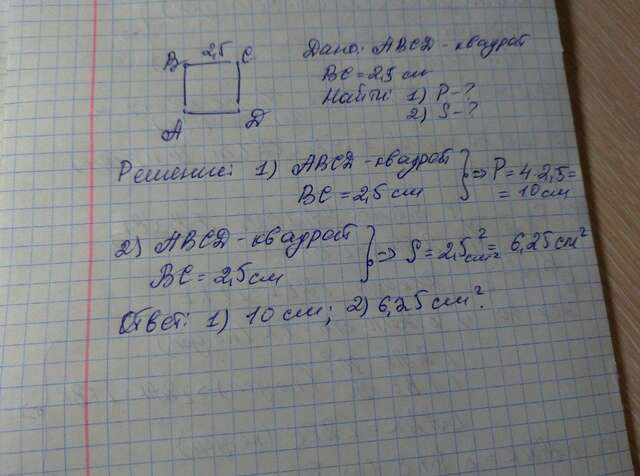 B 2,5 C
A D
Дано: ABCD - квадрат
BC = 2,5 см
Найти: 1) P - ?
2) S - ?
Решение: 1) ABCD - квадрат
BC = 2,5 см
} => P = 4 · 2,5 =
= 10 см
2) ABCD - квадрат
BC = 2,5 см
} => S = 2,5² см² = 6,25 см²
Ответ: 1) 10 см; 2) 6,25 см².